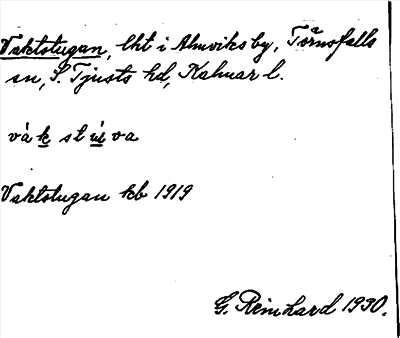 Vaktstugan, lht i Almviks by, Törnsfalls
sn, S. Tjusts hd, Kalmar l.
våk stúva
Vaktstugan kb 1919
G. Reinhard 1930.